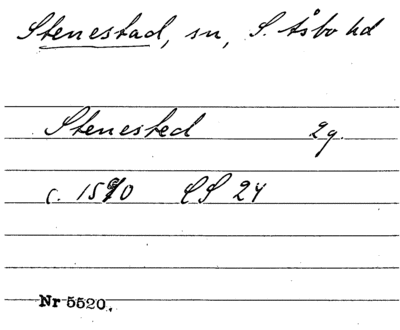 Stenestad, sn, S. Åsbo hd
Stenested 2g.
c. 1570 LS 24
Nr 5520.